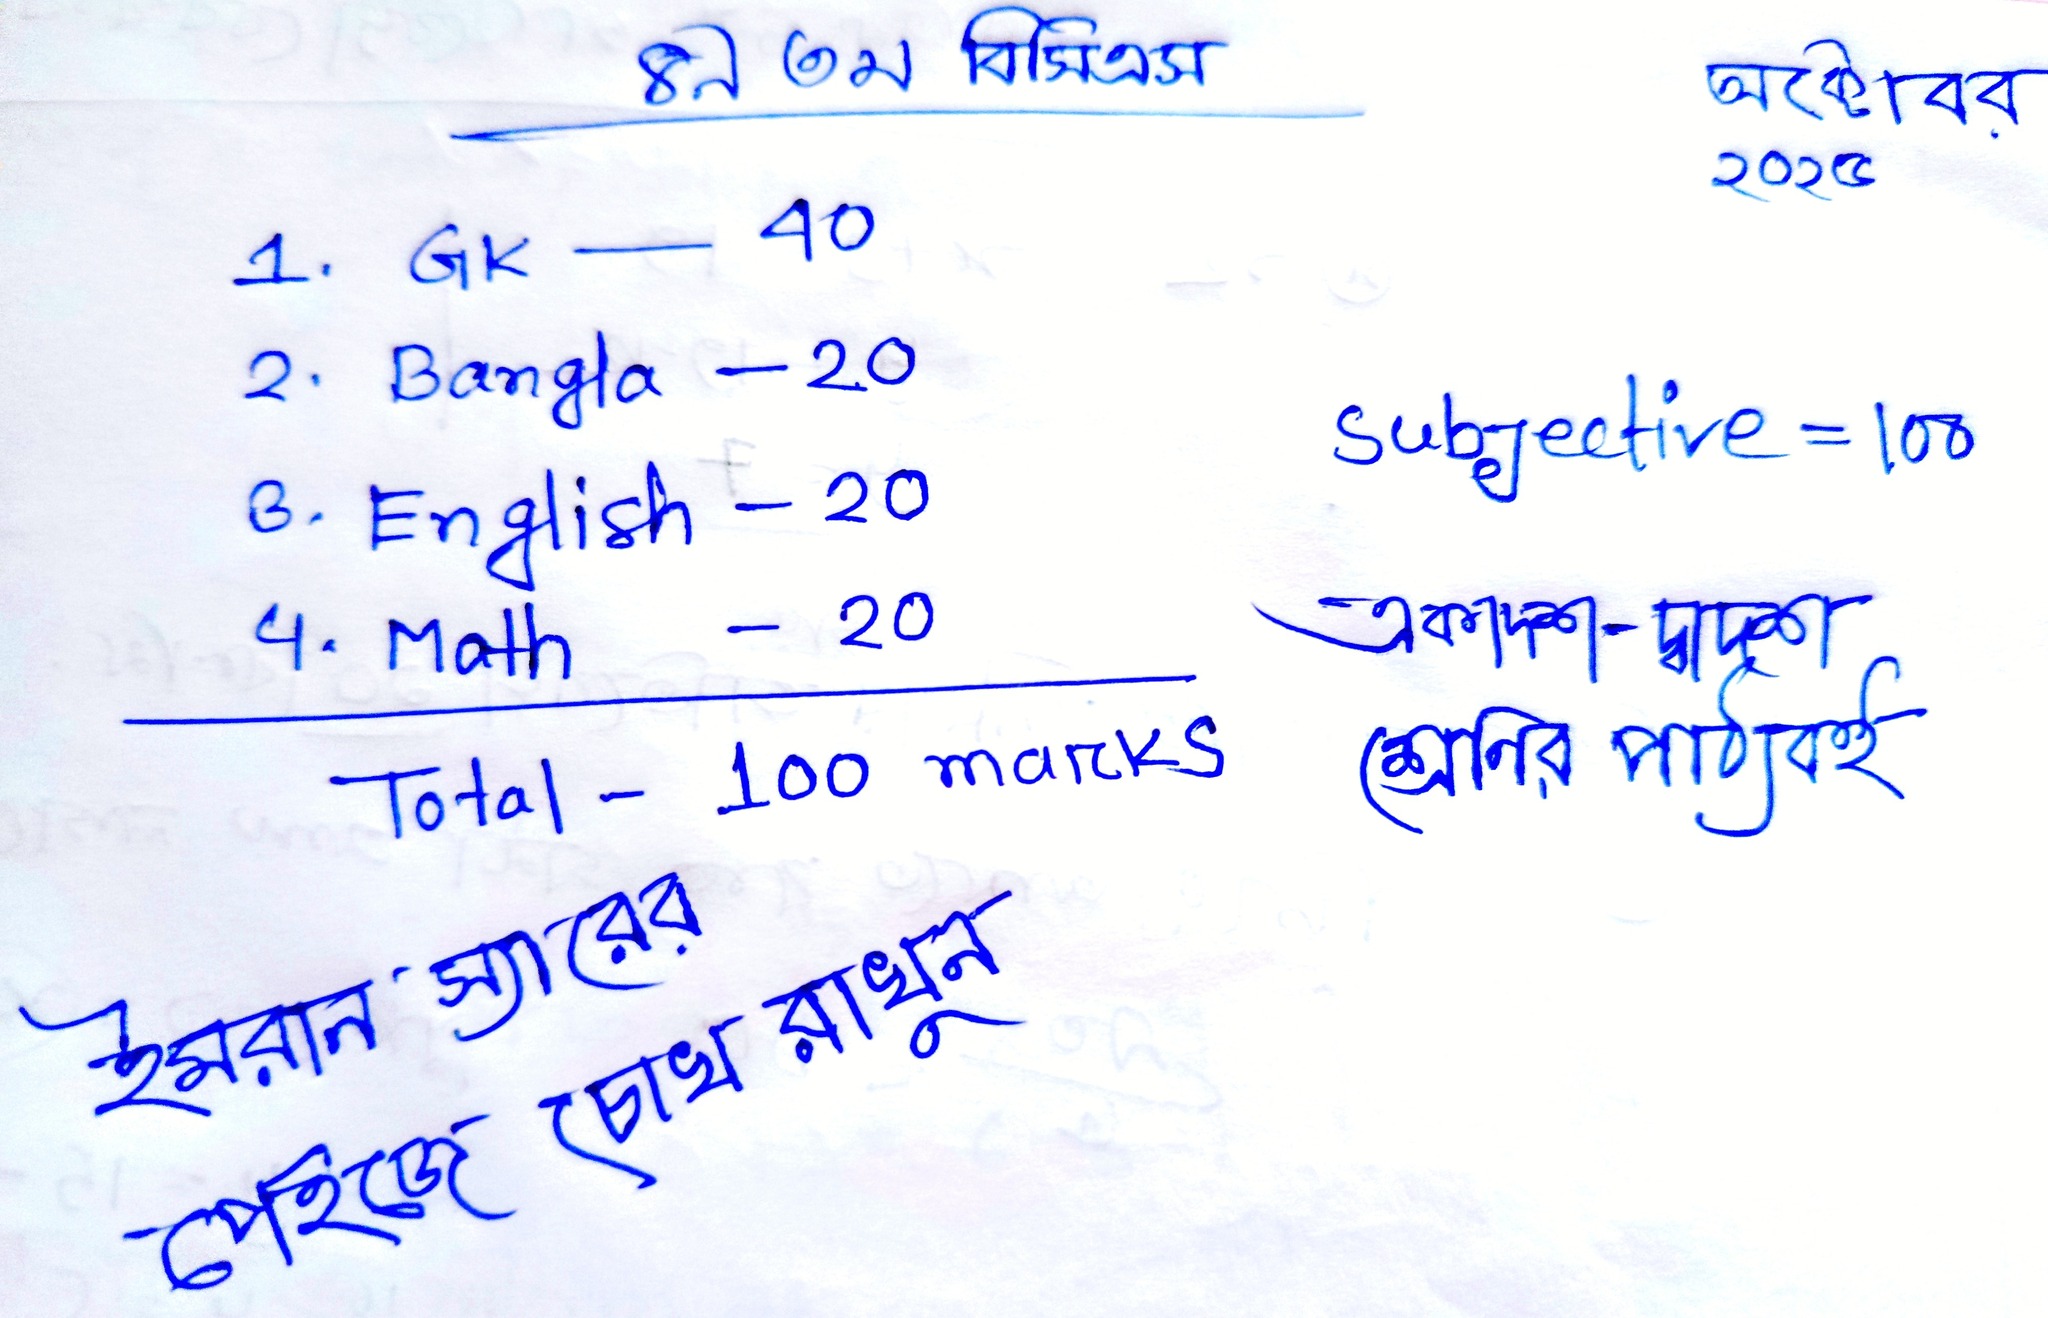 ৪৯ তম বিসিএস
অক্টোবর
২০২৫
1. GK — 40
2. Bangla - 20
3. English - 20
4. Math - 20
Total - 100 marks
Subjective = 100
একাদশ-দ্বাদশ
শ্রেনির পাঠ্যবই
ইমরান স্যারের
পেইজে চোখ রাখুন